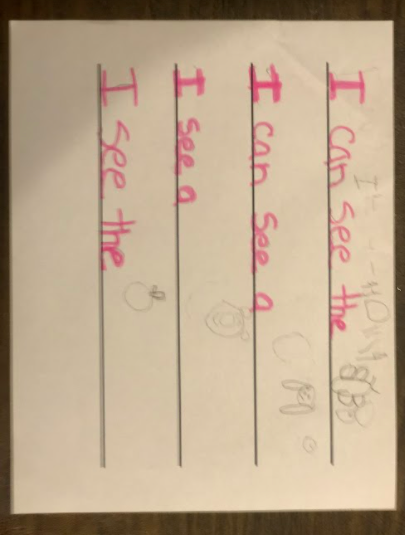 I can see the
I can see a
I see a
I see the